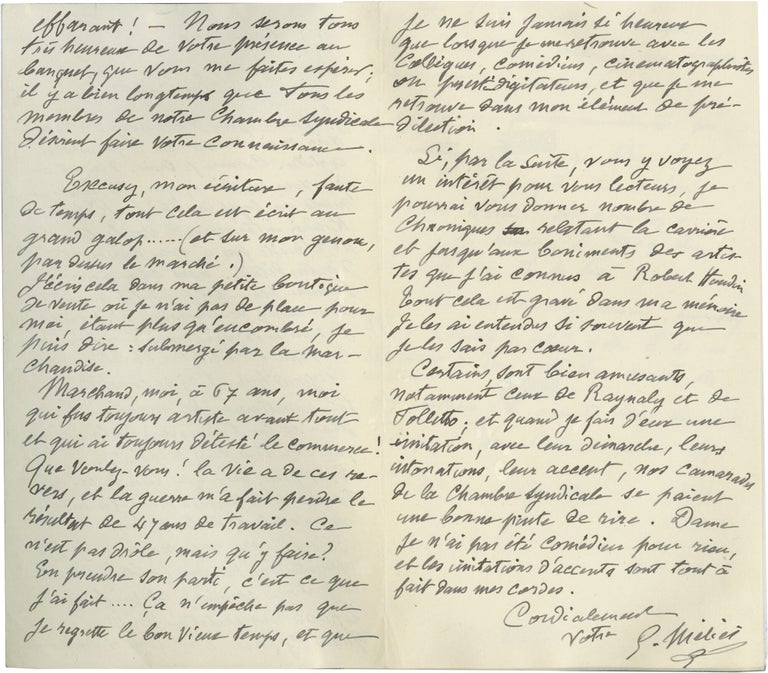 effarant! — Nous serons tous
très heureux de votre présence au
banquet, que vous me faites espérer,
il y a bien longtemps que tous les
membres de notre Chambre Syndicale
désirent faire votre connaissance.
Excusez, mon écriture, faute
de temps, tout cela est écrit au
grand galop......(et sur mon genou,
par dessus le marché.)
J'écris cela dans ma petite boutique
de vente où je n'ai pas de place pour
moi, étant plus qu'encombré, je
puis dire: submergé par la mar-
chandise.
Marchand, moi, à 67 ans, moi
qui fus toujours artiste avant tout
et qui ai toujours détesté le commerce!
Que voulez-vous! la vie a de ces re-
vers, et la guerre m'a fait perdre le
résultat de 47 ans de travail. Ce
n'est pas drôle, mais qu'y faire?
En prendre son parti, c'est ce que
j'ai fait.... Ça n'empêche pas que
je regrette le bon vieux temps, et que
je ne suis jamais si heureux
que lorsque je me retrouve avec les
Collègues, comédiens, cinématographistes
ou prestidigitateurs, et que je me
retrouve dans mon élément de pré-
dilection.
Si, par la suite, vous y voyez
un intérêt pour vous lecteurs, je
pourrai vous donner nombre de
Chroniques relatant la carrière
et jusqu'aux boniments des artis-
tes que j'ai connus à Robert Houdin
Tout cela est gravé dans ma mémoire
Je les ai entendus si souvent que
je les sais par cœur.
Certains sont bien amusants,
notamment ceux de Raynaly et de
Folletto; et quand je fais d'eux une
imitation, avec leur démarche, leurs
intonations, leur accent, nos camarades
de la Chambre Syndicale se paient
une bonne pinte de rire. Dame
je n'ai pas été comédien pour rien,
et les imitations d'accents sont tout à
fait dans mes cordes.
Cordialement
votre G. Méliès